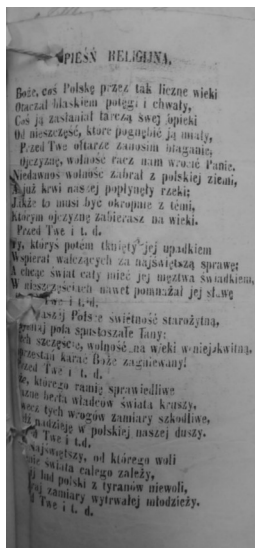 PIEŚŃ RELIGIJNA.
Boże, coś Polskę przez tak liczne wieki
Otaczał blaskiem potęgi i chwały,
Coś ją zasłaniał tarczą swej opieki
Od nieszczęść, które pognębić ją miały,
Przed Twe ołtarze zanosim błaganie;
Ojczyznę, wolność racz nam wrócić Panie.
Niedawnoś wolność zabrał z polskiej ziemi,
A już krwi naszej popłynęły rzeki;
Jakże to musi być okropnie z témi,
Którym ojczyznę zabierasz na wieki.
Przed Twe i t. d.
Ty, któryś potém tknięty jej upadkiem
Wspierał walczących za najświętszą sprawę;
A chcąc świat cały mieć jej męztwa świadkiem,
W nieszczęściach nawet pomnażał jej sławę
Twe i t. d.
naszej Polsce świetność starożytną,
pola spustoszałe Tany:
szczęście, wolność na wieki w niej kwitną,
karać Boże zagniewany!
Przed Twe i t. d.
którego ramię sprawiedliwe
berła władców świata kruszy,
tych wrogów zamiary szkodliwe,
nadzieję w polskiej naszej duszy.
Twe i t.d.
Najświętszy, od którego woli
świata całego zależy,
lud polski z tyranów niewoli,
zamiary wytrwałej młodzieży.
Twe i t. d.